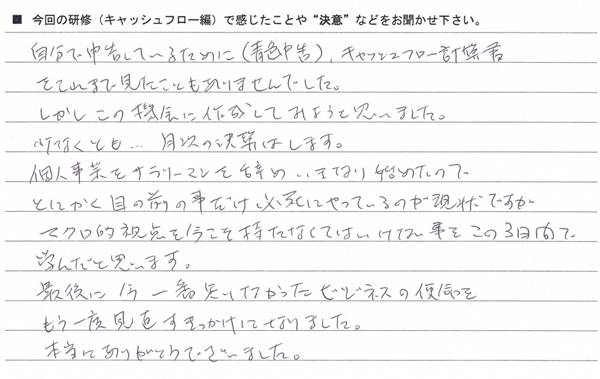 ■ 今回の研修（キャッシュフロー編）で感じたことや“決意”などをお聞かせ下さい。
自分で申告しているために（青色申告），キャッシュフロー計算書
をこれまで見たこともありませんでした。
しかしこの機会に作成してみようと思いました。
少なくとも… 月次の決算はします。
個人事業をサラリーマンを辞め いきなり始めたので
とにかく目の前の事だけ必死にやっているのが現状ですが
マクロ的視点を今こそ持たなくてはいけない事をこの3日間で
学んだと思います。
最後に今一番足りなかったビジネスの使命を
もう一度見直すきっかけになりました。
本当にありがとうございました。